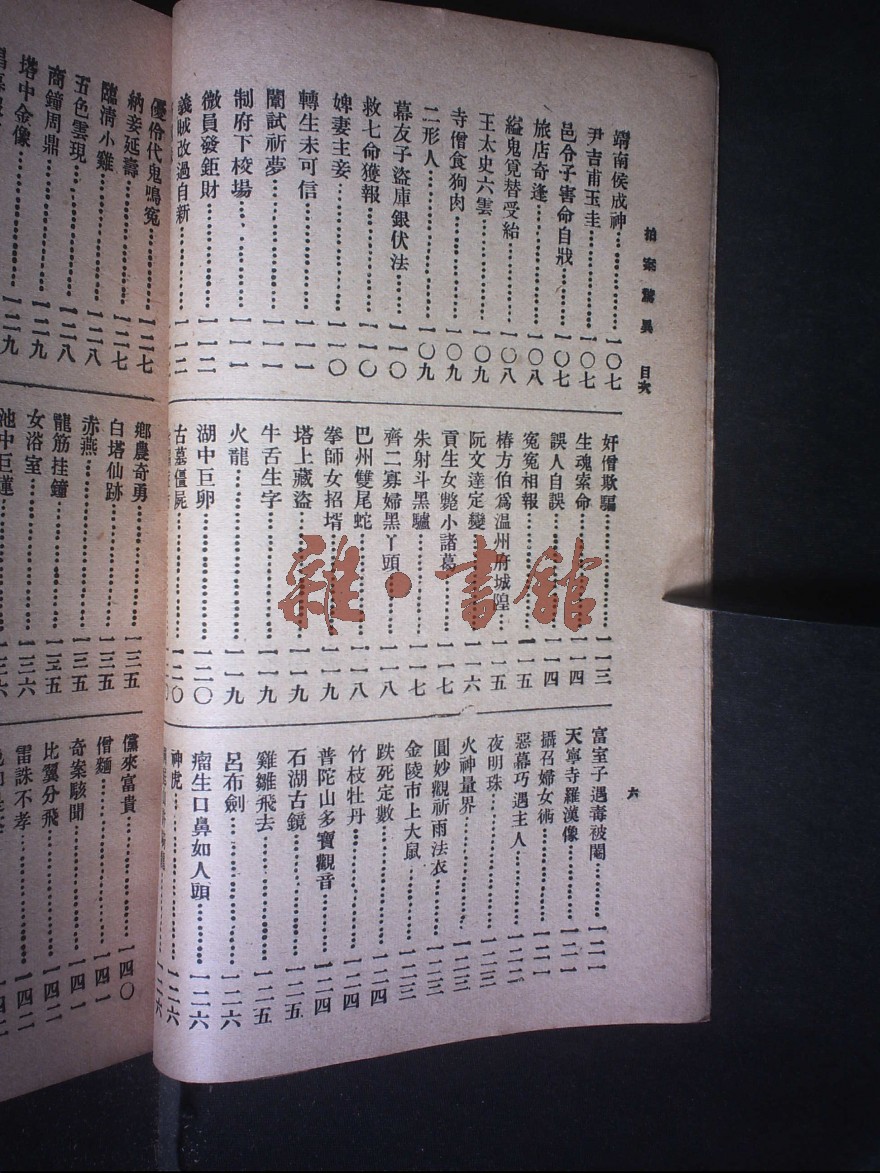 拍案驚異 目次
六
靖南侯成神⋯⋯一〇七
尹吉甫玉圭⋯⋯一〇七
邑令子害命自戕⋯⋯一〇七
旅店奇逢⋯⋯一〇八
縊鬼覓替受紿⋯⋯一〇八
王太史六雲⋯⋯一〇九
寺僧食狗肉⋯⋯一〇九
二形人⋯⋯一〇九
幕友子盜庫銀伏法⋯⋯一一〇
救七命獲報⋯⋯一一〇
婢妻主妾⋯⋯一一〇
轉生未可信⋯⋯一一一
闈試祈夢⋯⋯一一一
制府下校場⋯⋯一一一
微員發鉅財⋯⋯一一二
義賊改過自新⋯⋯一一二
奸僧欺騙⋯⋯一一三
生魂索命⋯⋯一一四
誤人自誤⋯⋯一一四
冤冤相報⋯⋯一一五
椿方伯爲温州府城隍⋯⋯一一五
阮文達定變⋯⋯一一六
貢生女斃小諸葛⋯⋯一一七
朱射斗黑驢⋯⋯一一七
齊二寡婦黑丫頭⋯⋯一一八
巴州雙尾蛇⋯⋯一一八
拳師女招壻⋯⋯一一九
塔上藏盜⋯⋯一一九
牛舌生字⋯⋯一一九
火龍⋯⋯一一九
湖中巨卵⋯⋯一二〇
古墓僵屍⋯⋯一二〇
富室子遇毒被閹⋯⋯一二一
天寧寺羅漢像⋯⋯一二一
攝召婦女術⋯⋯一二一
惡幕巧遇主人⋯⋯一二二
夜明珠⋯⋯一二三
火神量界⋯⋯一二三
圓妙觀祈雨法衣⋯⋯一二三
金陵市上大鼠⋯⋯一二三
跌死定數⋯⋯一二四
竹枝牡丹⋯⋯一二四
普陀山多寶觀音⋯⋯一二四
石湖古鏡⋯⋯一二五
雞雛飛去⋯⋯一二五
呂布劍⋯⋯一二六
瘤生口鼻如人頭⋯⋯一二六
神虎⋯⋯一二六
優伶代鬼鳴冤⋯⋯一二七
納妾延壽⋯⋯一二七
臨清小雞⋯⋯一二八
五色雲現⋯⋯一二八
商鐘周鼎⋯⋯一二九
塔中金像⋯⋯一二九
鄉農奇勇⋯⋯一三五
白塔仙跡⋯⋯一三五
赤燕⋯⋯一三五
龍筋挂鐘⋯⋯一三五
女浴室⋯⋯一三六
池中巨蓮⋯⋯一三六
儻來富貴⋯⋯一四〇
僧麵⋯⋯一四一
奇案駭聞⋯⋯一四一
比翼分飛⋯⋯一四二
雷誅不孝⋯⋯一四二
雜·書館